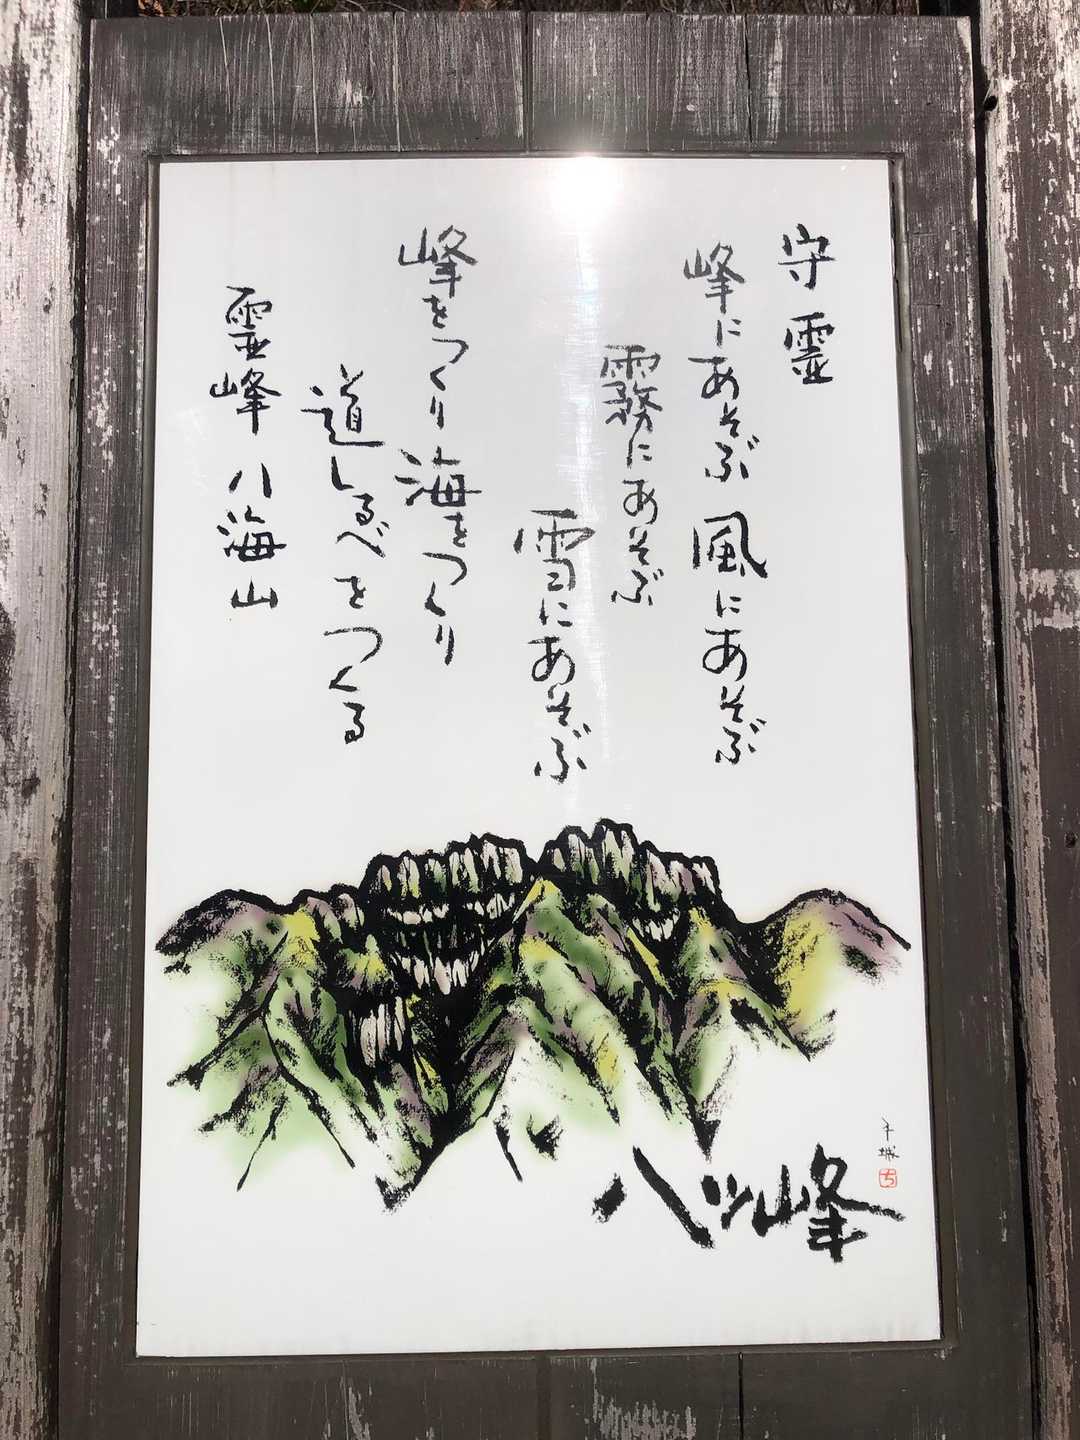 守霊
峰にあそぶ 風にあそぶ
霧にあそぶ
雪にあそぶ
峰をつくり 海をつくり
道しるべをつくる
霊峰 八海山
八ッ峰
千城
ち